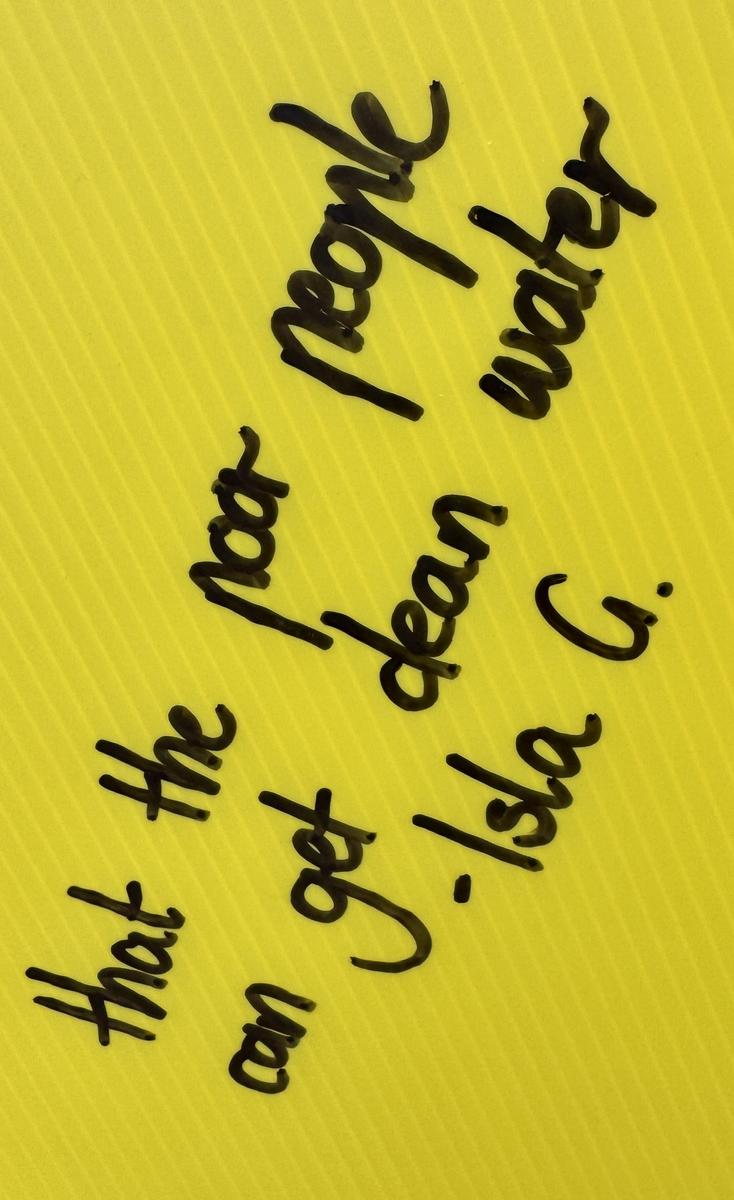 that the poor people
can get clean water
-Isla G.